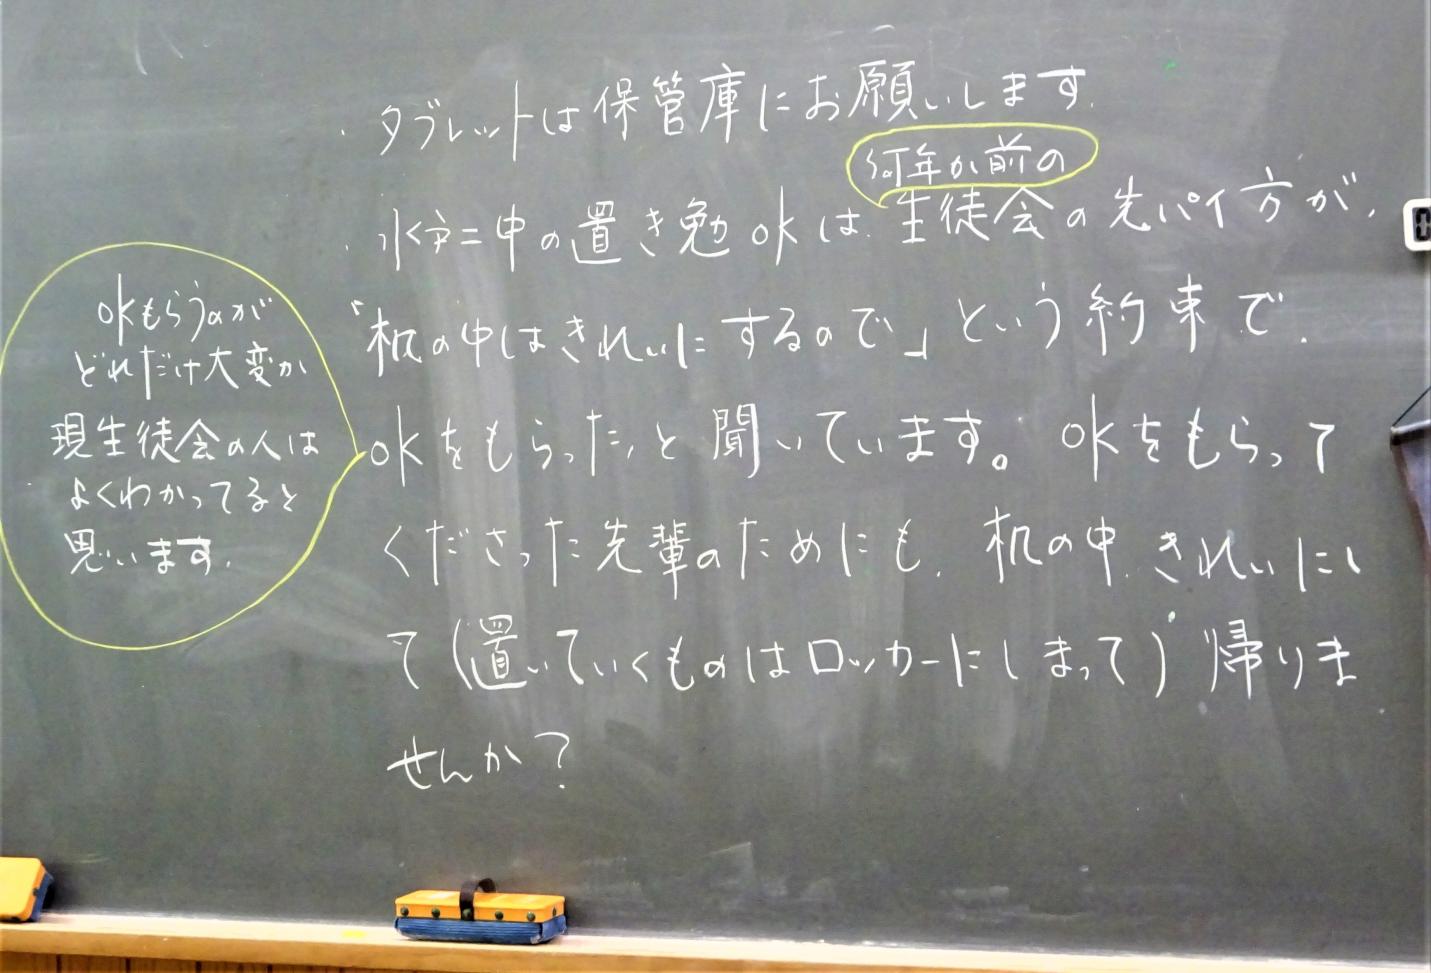 ・タブレットは保管庫にお願いします。
何年か前の
・水戸二中の置き勉OKは、生徒会の先パイ方が、
「机の中はきれいにするので」という約束で、
OKをもらった、と聞いています。OKをもらって
くださった先輩のためにも、机の中、きれいにし
て(置いていくものはロッカーにしまって)帰りま
せんか?
OKもらうのが
どれだけ大変か
現生徒会の人は
よくわかってると
思います。